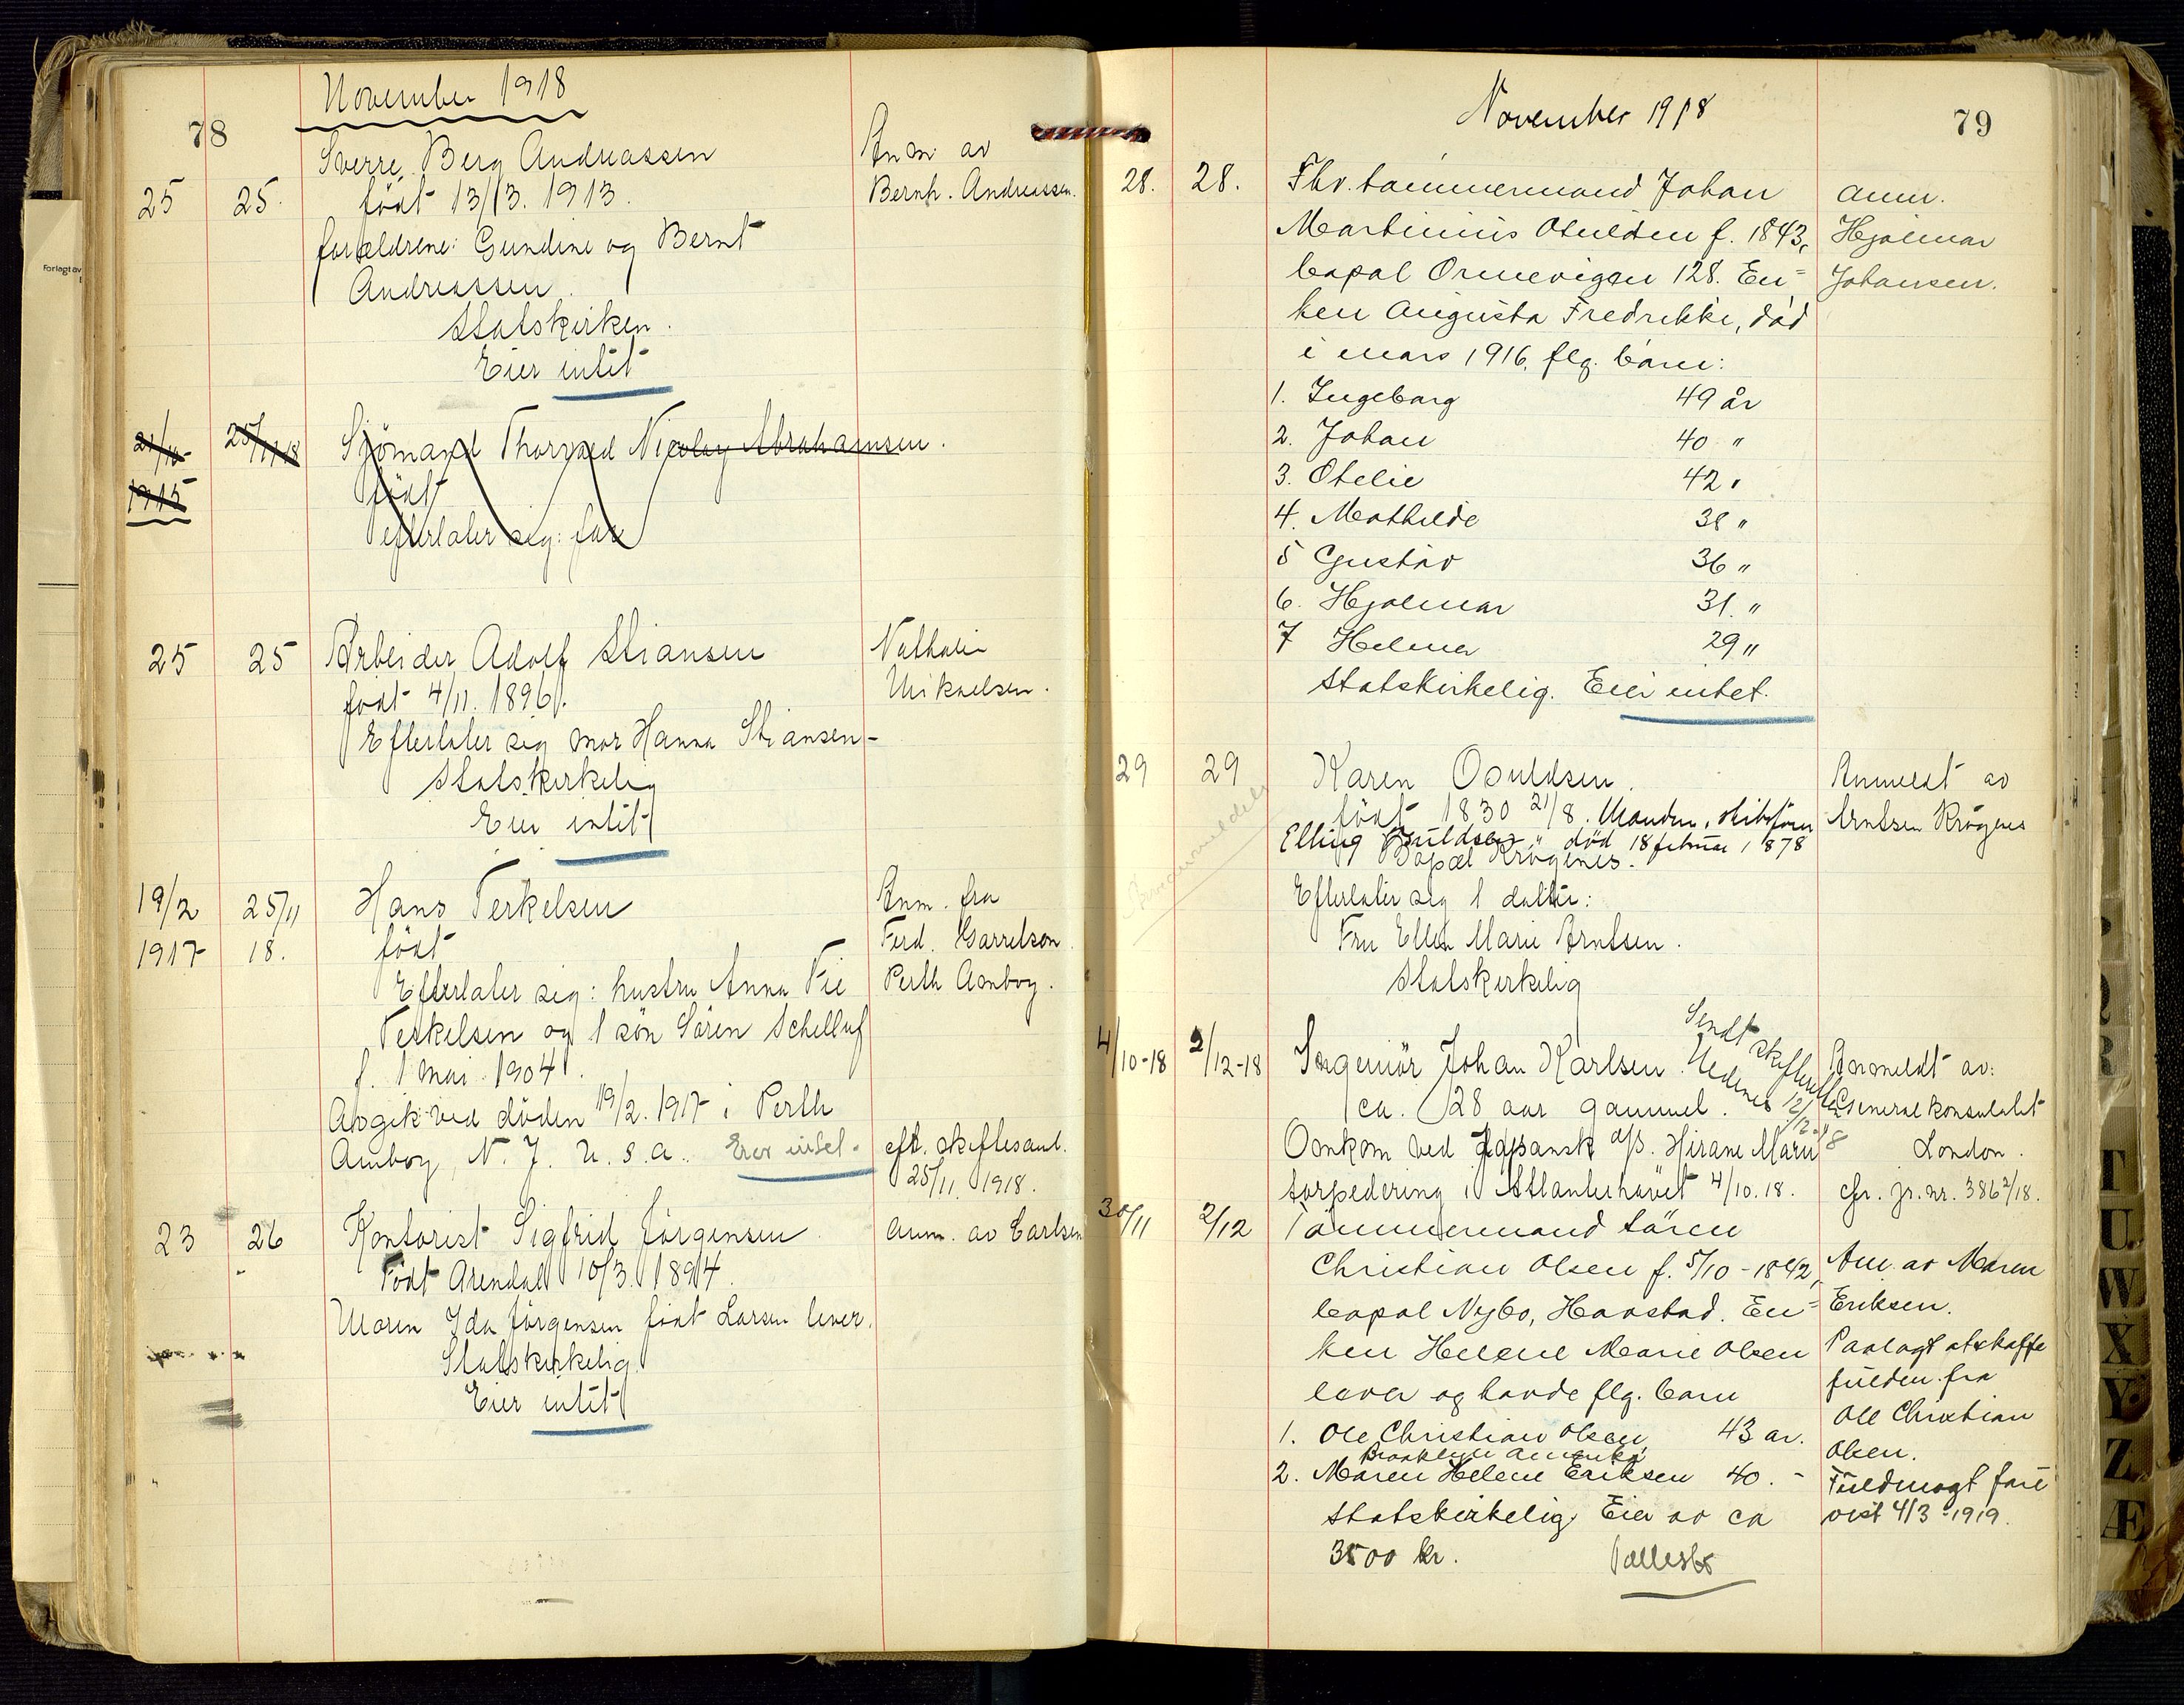 78
November 1918
25 25. Sverre Berg Andreassen Anm. av
født 13/3. 1913. Bernh. Andreassen.
forældrene: Gundine og Bernt
Andreassen.
Statskirken.
Eier intet
21/10 1915 25/11 18 Sjömand Thorvald Nicolay Abrahamsen.
født
efterlater sig: fare
25 25 Arbeider Adolf Stiansen Nathalie
født 4/11. 1896. Mikaelsen.
Efterlater sig mor Hanna Stiansen-
Statskirkelig
Eier intet
19/2 25/11 Hans Terkelsen Anm. fra
1917 18. født Ferd. Garretson
Efterlater sig: hustru Anna Fie Perth Amboy.
Terkelsen og 1 søn Søren
f. 1 mai 1904.
Avgik ved døden 19/2. 1917 i Perth
Amboy, N. J. U. S. A. Eier intet. eft. skiftesaml.
25/11. 1918.
23 26 Kontorist Sigfrid Jörgensen. Anm. av Carlsen
Født Arendal 10/3. 1894.
Moren Ida Jörgensen født Larsen lever.
Statskirkelig
Eier intet
79
November 1918
28. 28. Fhv. tømmermand Johan Anm.
Martinius Osuldsen f. 1843, Hjalmar
bopæl Ormevigen 128. En= Johansen.
ken Augusta Fredrikke, død
i mars 1916, flg. barn:
1. Ingeborg 49 år
2. Johan 40 "
3. Otelie 42 "
4. Mathilde 38 "
5 Gustav 36 "
6. Hjalmar 31. "
7 Helmer 29 "
Statskirkelig. Eier intet.
29 29 Karen Osuldsen. Anmeldt av
født 1830 21/8. Manden, skibsfører Arntsen Krögenes
Elling Osuldsen, død 18 februar 1878
Bopæl Krögenes.
Efterlater sig 1 datter:
Fru Ellen Marie Arntsen.
Statskirkelig
4/10-18 2/12-18 Ingeniör Johan Karlsen. Anmeldt av:
Sendt skifteretten
Nedenes 12/12-18
ca. 28 aar gammel. Generalkonsulatet
Omkom ved Japansk d/s. Hirano Maru London.
torpedering i Atlanterhavet 4/10.18. cfr. jr. nr. 3862/18.
30/11 2/12 Tømmermand Søren
Christian Olsen f. 5/10-1842, Anm. av Maren
bopæl Nybo, Havstad. En= Eriksen.
ken Helene Marie Olsen Paalagt at skaffe
lever og havde flg. barn fuldm. fra
1. Ole Christian Olsen 43 år. Ole Christian
Brooklyn Amerika Olsen.
2. Maren Helene Eriksen 40. - Fuldmagt fore
Statskirkelig. Eier av ca vist 4/3-1919.
3500 kr.